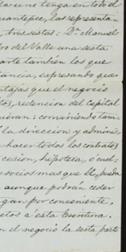 ace no tenga en todo el
uantepec, las representa
tres sestas; Dr. Manuel
ro del Valle una sesta
arte tambien los que
ancia, espresando que
tajas que el negocio
tos, retencion del capital
uieran: conviniendo tam
la direccion y admini
hacer todos los contratos
cesion, hipoteca, o cual
socios mas que
aunque podran ceder
gan por conveniente,
cto á esta Escritura.
n el negocio la sesta parte